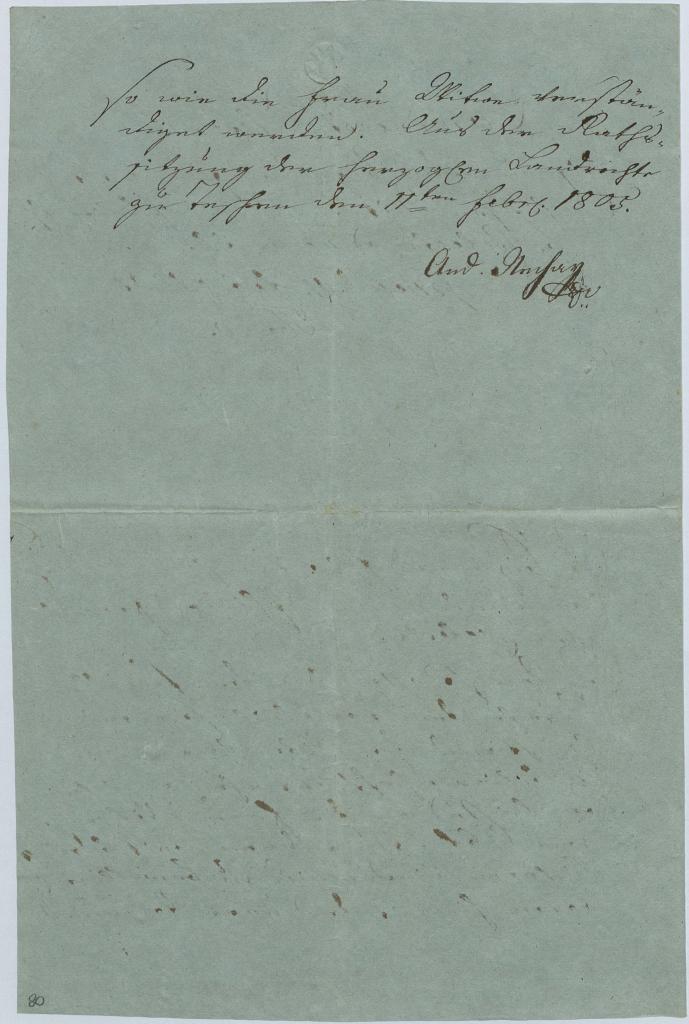 so wie die Frau Witwe verstän-
diget werden. Aus der Raths-
sitzung der herzoglen Landrechte
zu Teschen den 11ten Febr. 1805.
And. Nechay
80